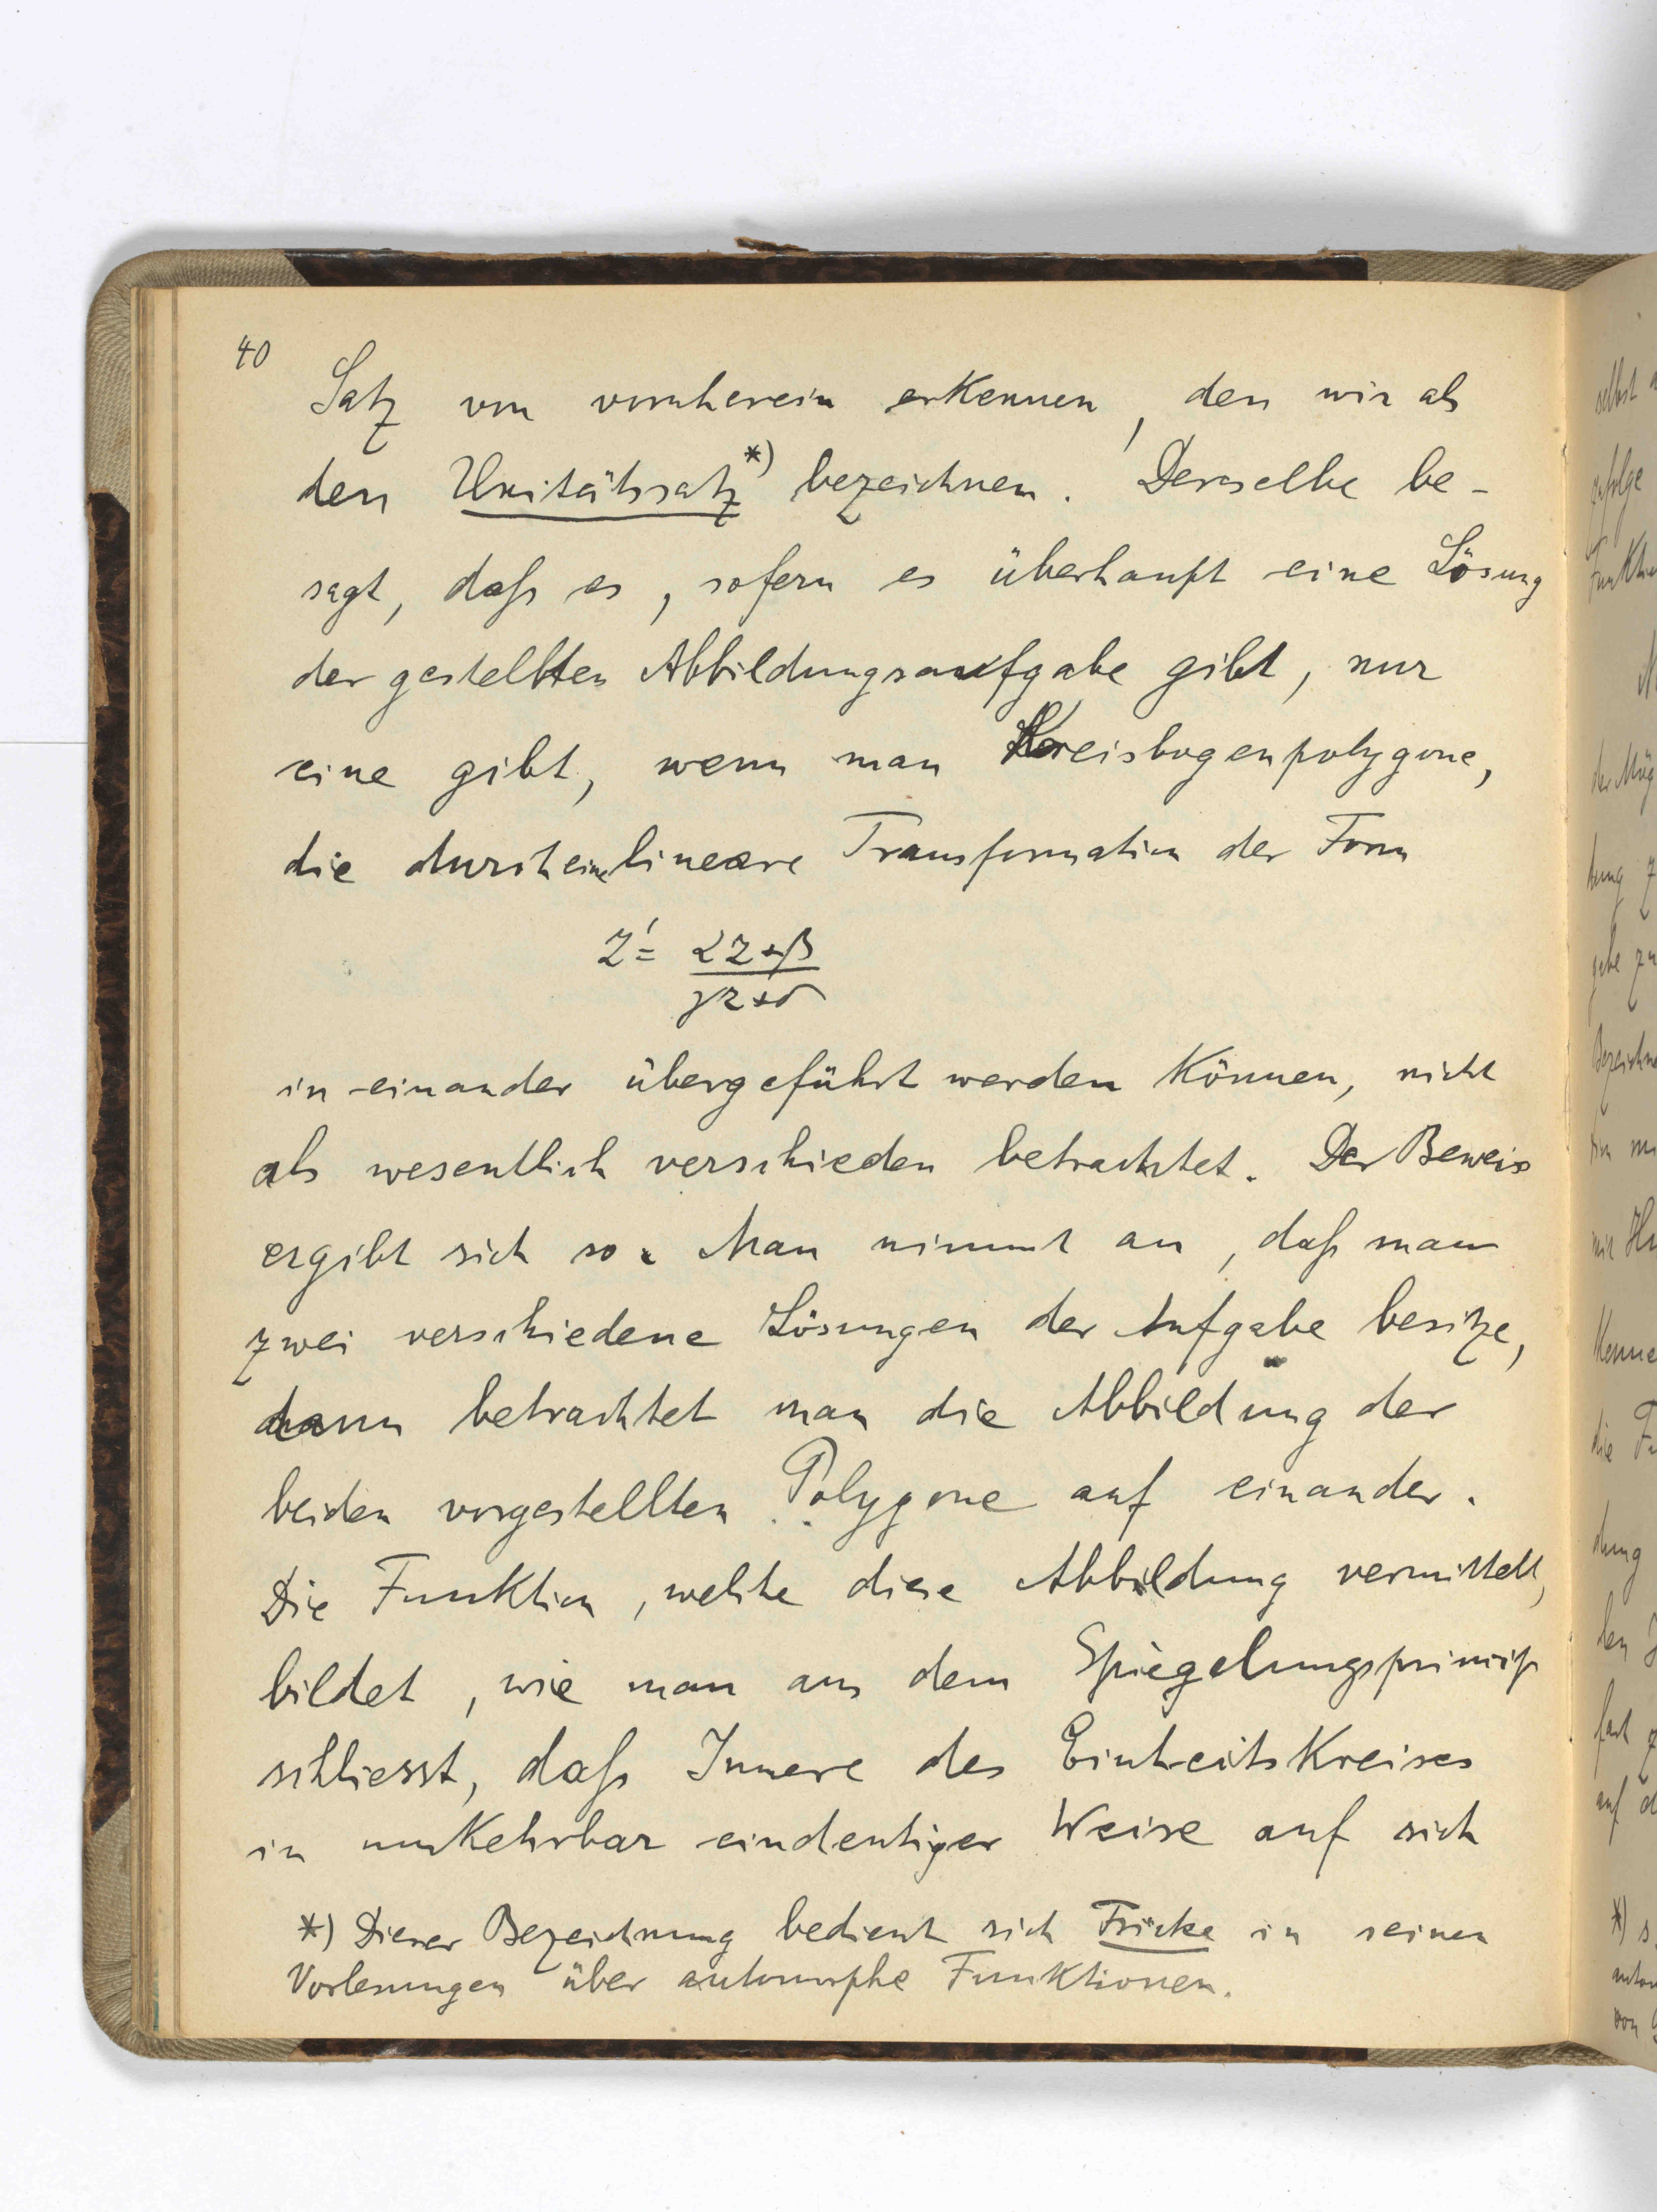 40
Satz von vornherein erkennen, den wir als
den Unitätssatz*) bezeichnen. Derselbe be-
sagt, daß es, sofern es überhaupt eine Lösung
der gestellten Abbildungsaufgabe gibt, nur
eine gibt, wenn man Kreisbogenpolygone,
die durch eine lineare Transformation der Form
Z' = αZ+β / γZ+δ
in einander übergeführt werden können, nicht
als wesentlich verschieden betrachtet. Der Beweis
ergibt sich so. Man nimmt an, daß man
zwei verschiedene Lösungen der Aufgabe besitze,
dann betrachtet man die Abbildung der
beiden vorgestellten Polygone auf einander.
Die Funktion, welche diese Abbildung vermittelt,
bildet, wie man aus dem Spiegelungsprincip
schliesst, daß Innere des Einheitskreises
in umkehrbar eindeutiger Weise auf sich
*) Dieser Bezeichnung bedient sich Fricke in seinen
Vorlesungen über automorphe Funktionen.